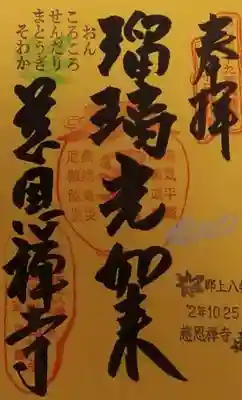 奉拝
瑠璃光如来
おん
ころころ
せんだり
まとうぎ
そわか
慈恩禅寺
郡上八
2年10.25
慈恩禅寺